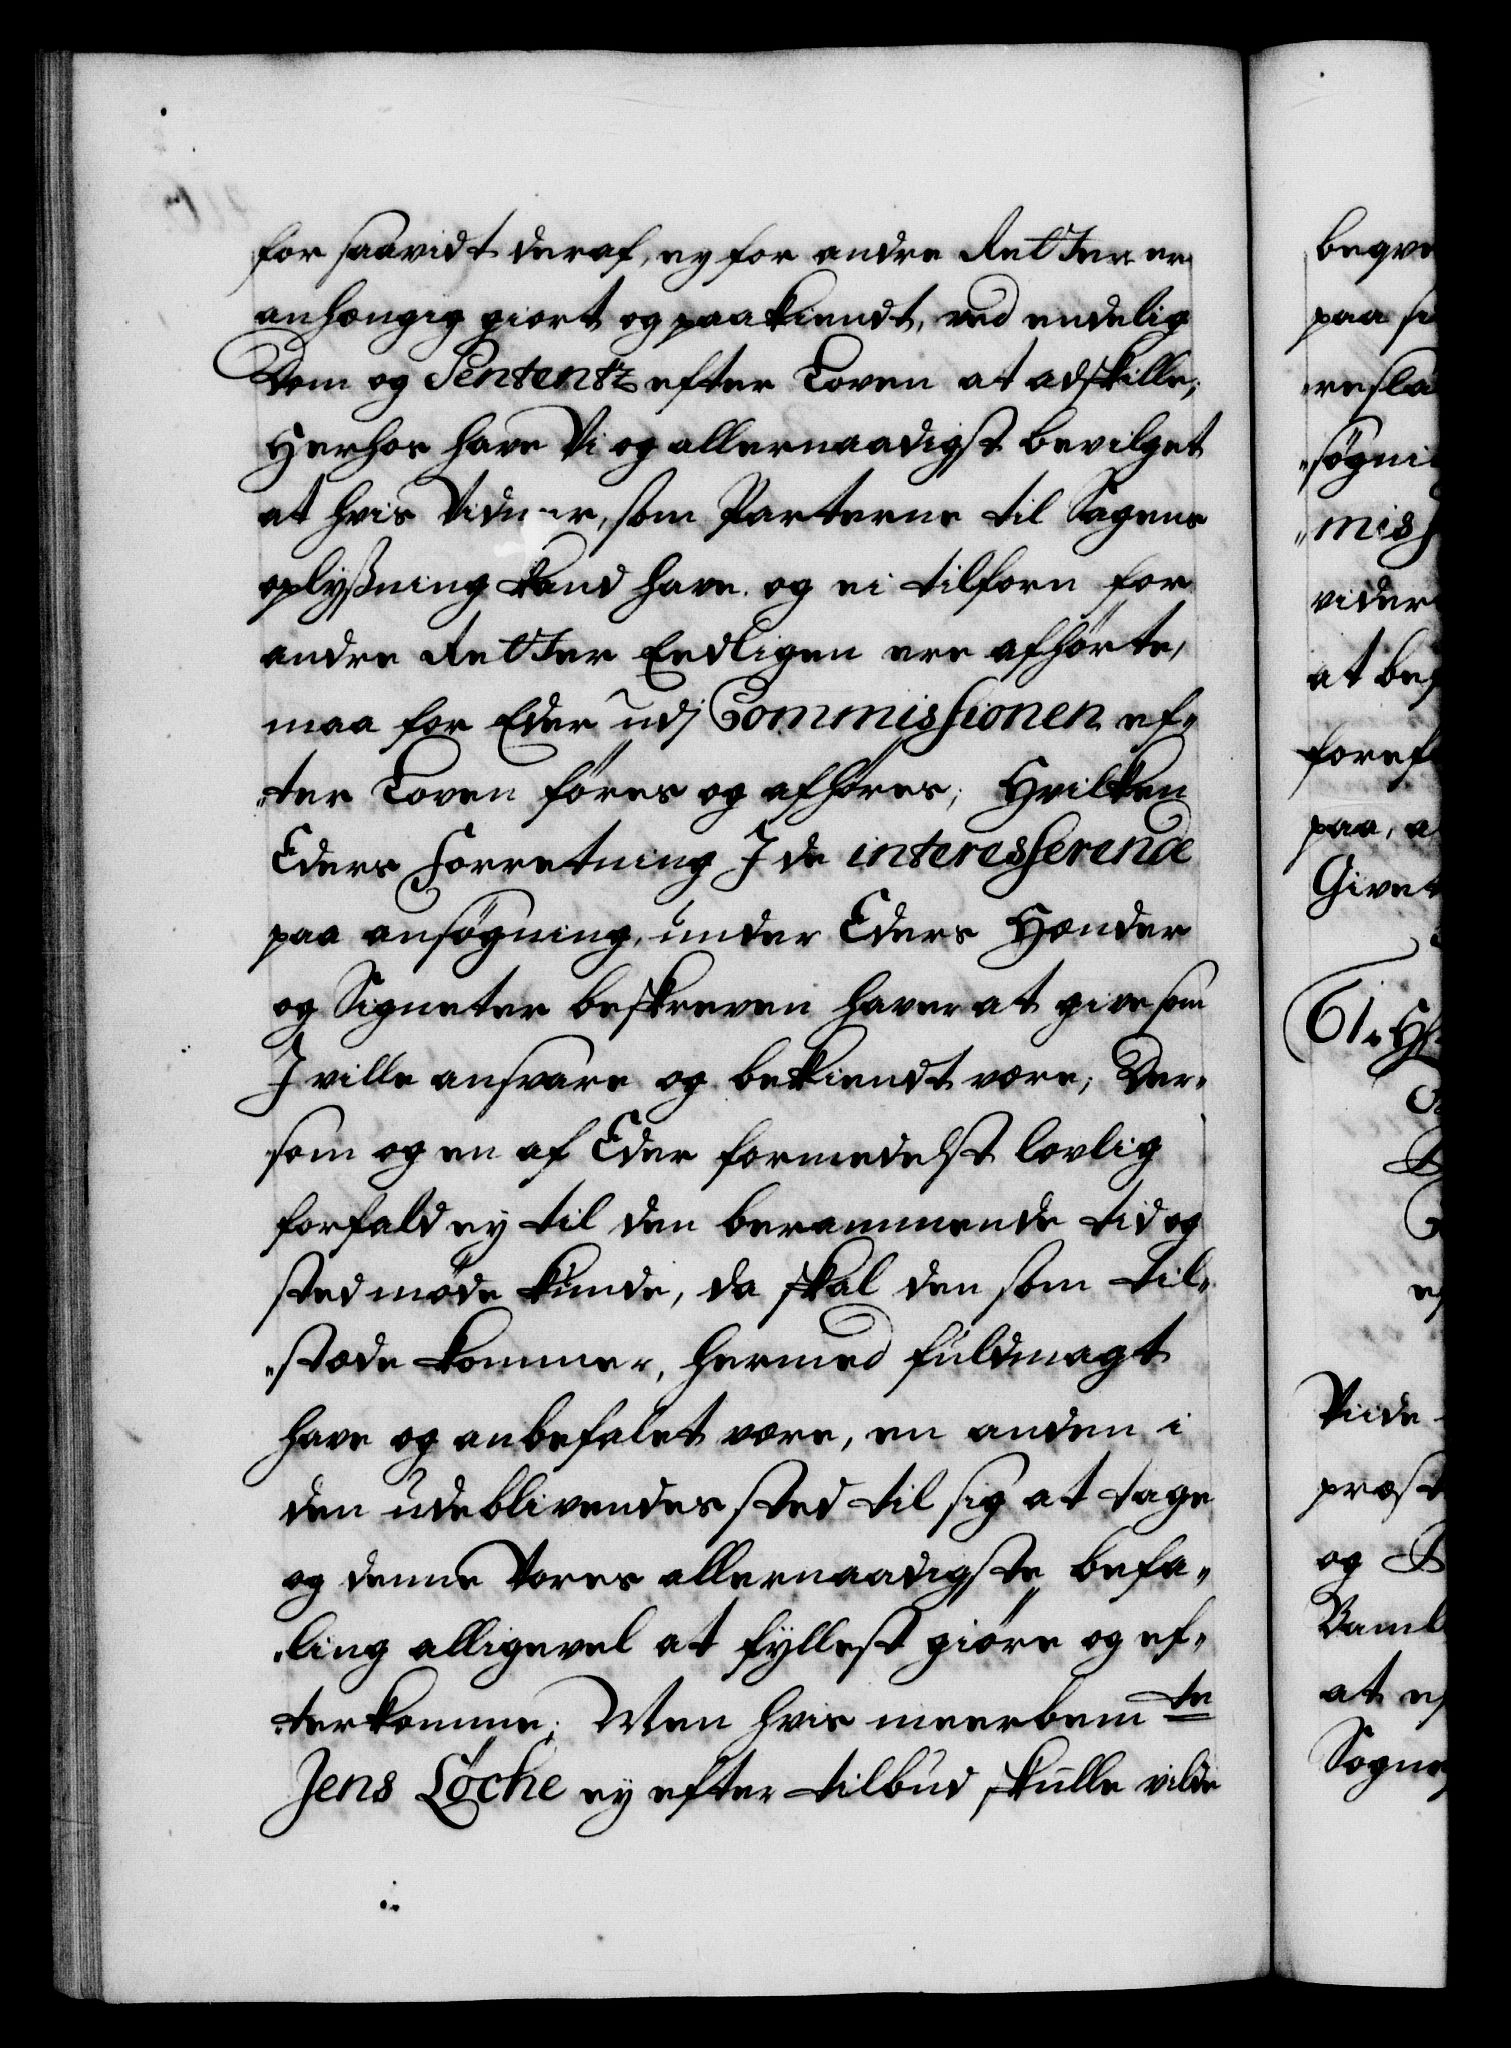 for saavidt deraf, ey for andre Retter er
anhængig giort og paakiendt, ved endelig
Dom og Sententz efter Loven at adskille;
Herhos have Vi og allernaadigst bevilget
at hvis Vidner, som Parterne til Sagens
oplyßning kand have og ei tilforn for
andre Retter Eedligen ere afhørte,
maa for Eder udj Commissionen ef„
„ter Loven føres og afhøres; Hvilken
Eders Forretning I de interesserende
paa ansøgning, under Eders Hænder
og Signeter beskreven haver at give som
I ville ansvare og bekiendt være; Der„
som og en af Eder formedelst lovlig
forfald ey til den berammende tid og
sted møde kunde, da skal den som til„
„stæde kommer, hermed fuldmagt
have og anbefalet være, en anden i
den udeblivendes sted til sig at tage
og denne Vores allernaadigste befa„
„ling alligevel at fyllest giøre og ef„
„terkomme; Men hvis meerbem.te
Jens Løcke ey efter tilbud skulle vilde
begve
paa si
resla
„søgni
„miss
vider
at beg
foref
paa, a
Givet
61. H
Viide
præst
og B
Bamb
at ef
Sogne